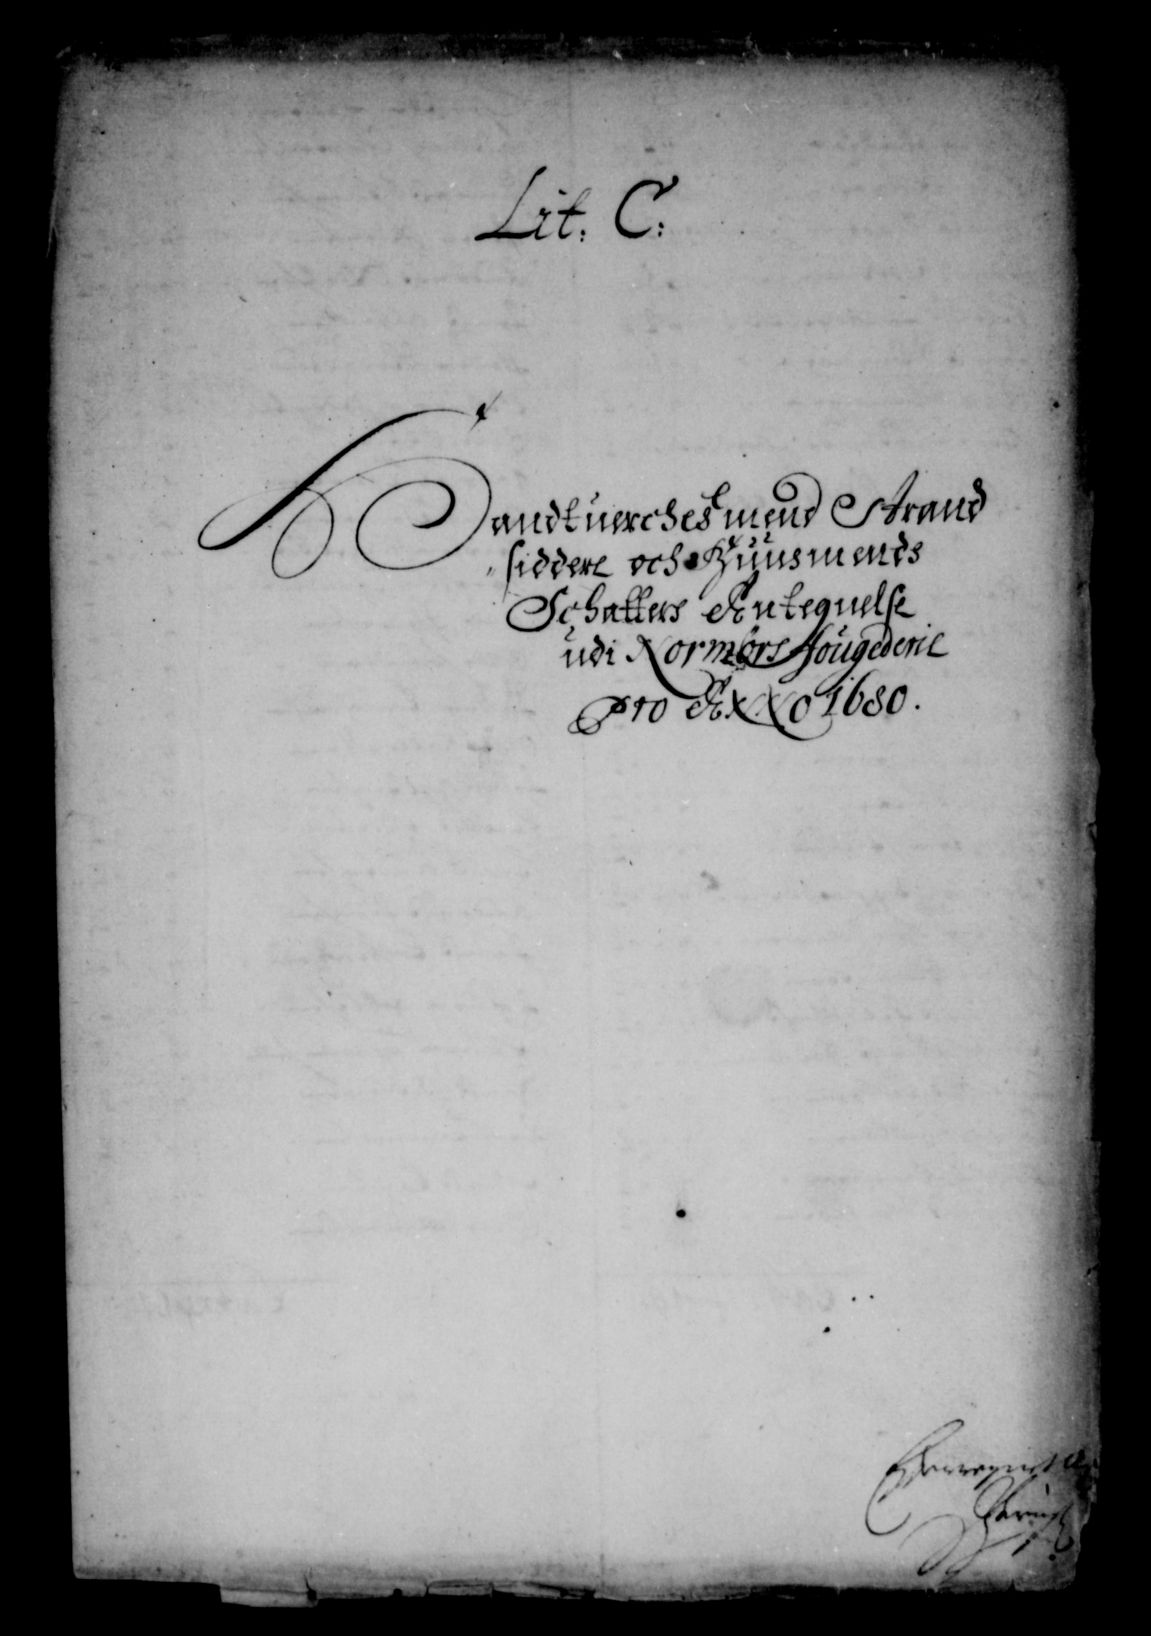 Lit: C:
Handtuerchesmend Strand
siddere och Huusmends
Schatters Antegnelse
udi Normørs fougederie
pro ANNO 1680.